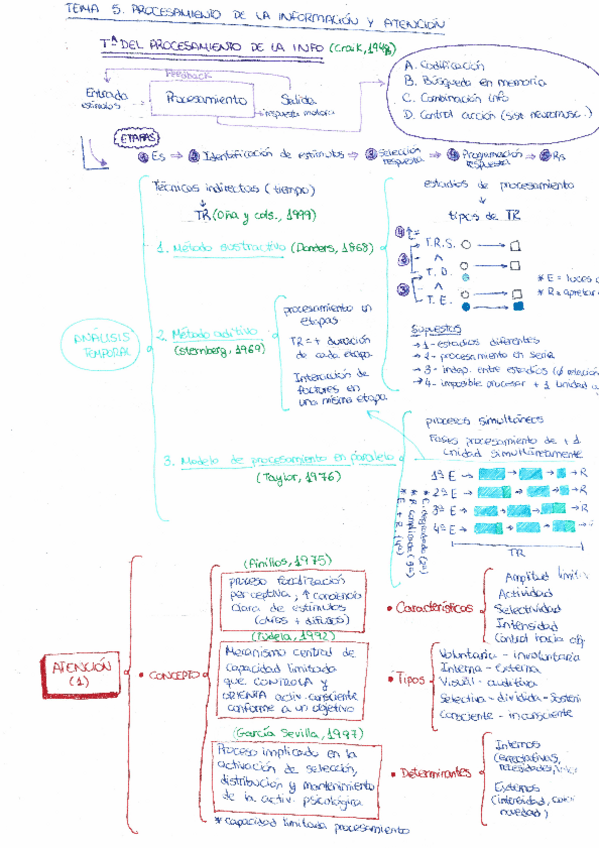 TEMA 5. PROCESAMIENTO DE LA INFORMACIÓN Y ATENCIÓN
Tª DEL PROCESAMIENTO DE LA INFO (Craik, 1948)
Feedback
Entrada
estímulos
Procesamiento
Salida
respuesta motora
A. Codificación
B. Búsqueda en memoria
C. Combinación info
D. Control acción (sist neuromusc.)
ETAPAS
1 Es → 2 Identificación de estímulos → 3 Selección respuesta → 4 Programación respuesta → 5 Rs
ANÁLISIS
TEMPORAL
Técnicas indirectas (tiempo)
TR (Oña y cols., 1999)
1. Método sustractivo (Donders, 1868)
estadios de procesamiento
tipos de TR
T.R.S.
^
T. D.
^
T. E.
* E = luces
* R = apretar
Supuestos
→ 1 - estadios diferentes
→ 2 - procesamiento en serie
→ 3 - indep. entre estadios
→ 4 - imposible procesar + 1 unidad
2. Método aditivo
(Sternberg, 1969)
procesamiento en
etapas
TR = + duración
de cada etapa
Interacción de
factores en
una misma etapa
3. Modelo de procesamiento en paralelo
(Taylor, 1976)
procesos simultáneos
Fases procesamiento de + d 1
unidad simultáneamente
1ª E → → → → R
2ª E → → → → R
3ª E → → → → R
4ª E → → → → R
TR
* E. degradada (2ª)
* R complicada (3ª)
* E + R (4ª)
ATENCIÓN
(1)
• CONCEPTO
(Pinillos, 1975)
proceso focalización
perceptiva; ↑ conciencia
clara de estímulos
(otros + difusos)
(Tudela, 1992)
Mecanismo central de
capacidad limitada
que CONTROLA y
ORIENTA activ. consciente
conforme a un objetivo
(García Sevilla, 1997)
Proceso implicado en la
activación de selección,
distribución y mantenimiento
de la activ. psicológica
* capacidad limitada procesamiento
• Características
Amplitud
Actividad
Selectividad
Intensidad
Control hacia obj
• Tipos
Voluntaria - involuntaria
Interna - externa
Visual - auditiva
Selectiva - dividida - Sosteni
Consciente - inconsciente
• Determinantes
Internos
(expectativas,
necesidades,
Externos
(intensidad,
novedad)